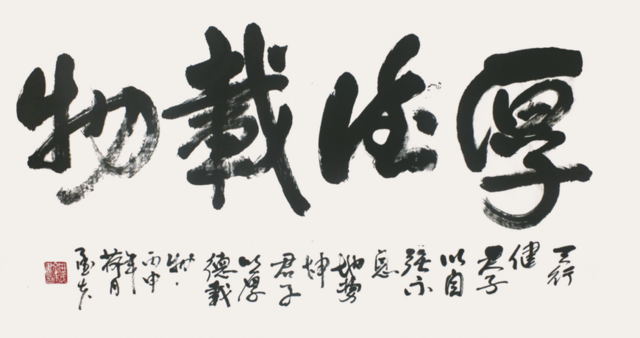 厚德載物
天行
健
君子
以自
強不
息
地勢
坤
君子
以厚
德載
物
丙申
年
荷月